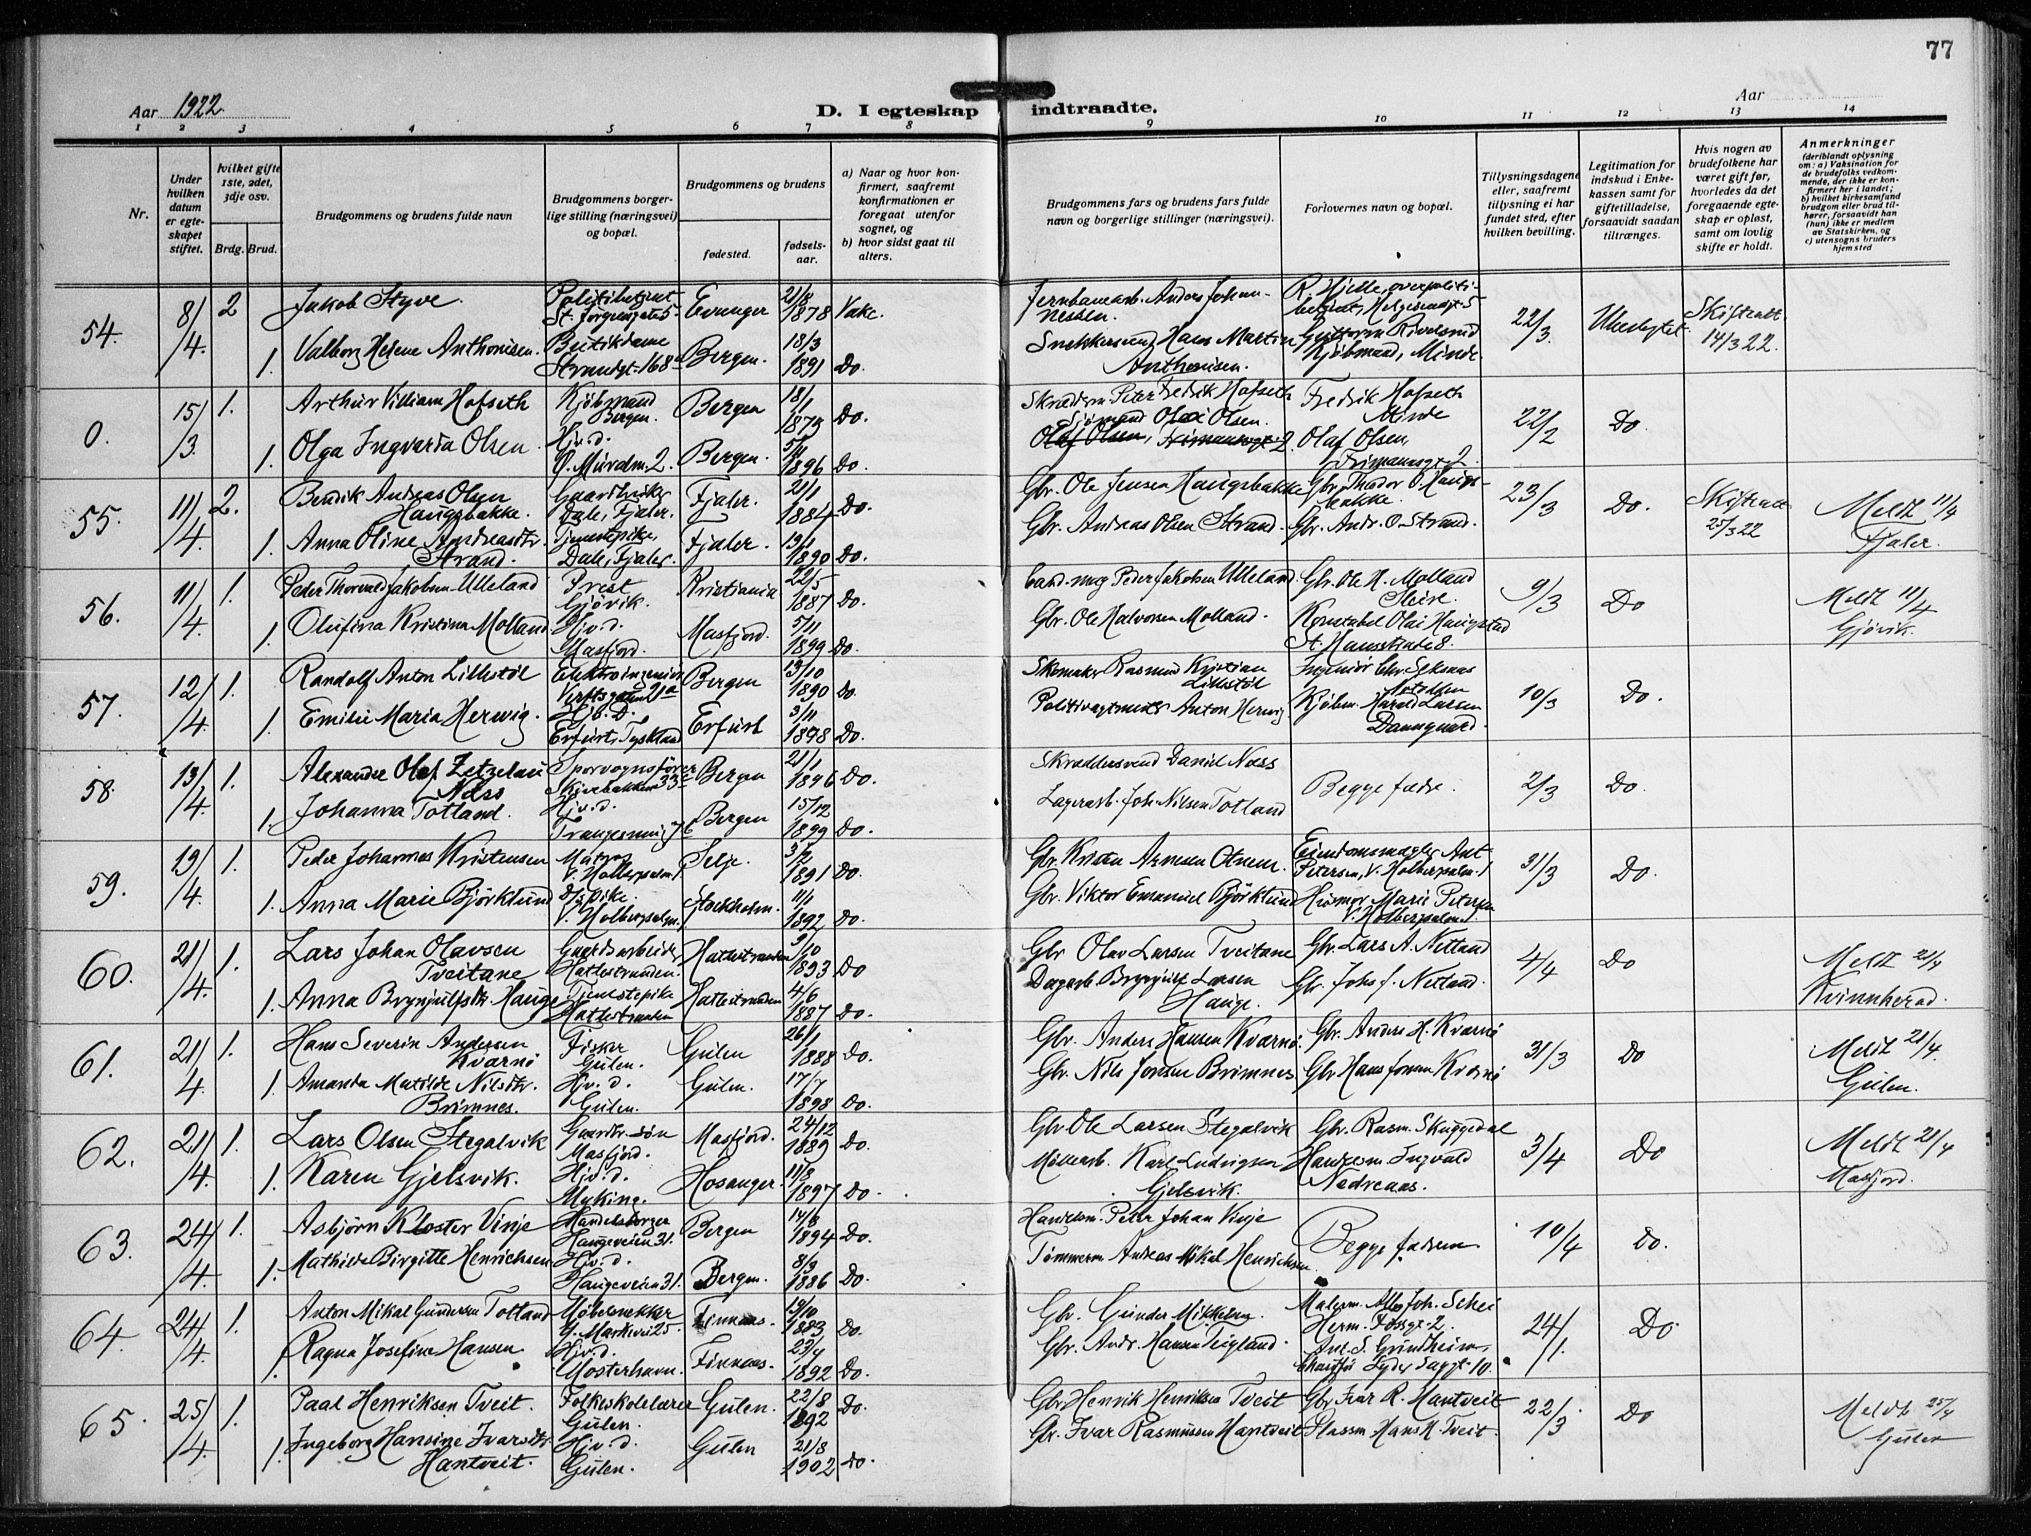 77
Aar 1922
D. I egteskap indtraadte.
Aar
1 2 3 4 5 6 7 8 9 10 11 12 13 14
Nr.
Under hvilken datum er egteskapet stiftet.
hvilket gifte 1ste, 2det, 3dje osv.
Brdg. Brud.
Brudgommens og brudens fulde navn
Brudgommens borgerlige stilling (næringsvei) og bopæl.
Brudgommens og brudens
fødested.
fødselsaar.
a) Naar og hvor konfirmert, saafremt konfirmationen er foregaat utenfor sognet, og
b) hvor sidst gaat til alters.
Brudgommens fars og brudens fars fulde navn og borgerlige stillinger (næringsvei).
Forlovernes navn og bopæl.
Tillysningsdagene eller, saafremt tillysning ei har fundet sted, efter hvilken bevilling.
Legitimation for indskud i Enkekassen samt for giftetilladelse, forsaavidt saadan tiltrænges.
Hvis nogen av brudefolkene har været gift før, hvorledes da det foregaaende egteskap er opløst, samt om lovlig skifte er holdt.
Anmerkninger
(deriblandt oplysning om: a) Vaksination for de brudefolks vedkommende, der ikke er konfirmert her i landet; b) hvilket kirkesamfund brudgom eller brud tilhører, forsaavidt han (hun) ikke er medlem av Statskirken, og c) utensogns bruders hjemsted
54. 8/4. 2 Jakob Styve. Politibetjent St. Jørgensgate 5 Evanger 21/8 1878 Vake. Jernbanearb. Anders Johannessen. R. Hjelle, overpolitibetjent, Helgesensgt. 5 22/3. Ubeskyttet Skifteatt. 14/3 22.
1. Valborg Helene Anthonisen. Butikdame Strandgt. 168 Bergen. 18/3 1891 Do. Snekkersvend Hans Martin Anthonisen. Guttorm Kjøbmand, Minde
0. 15/3. 1. Arthur Villiam Hofseth Kjøbmand Bergen. Bergen 18/1 1873 Do. Skræderm. Peter Fredrik Hofseth Fredrik Hofseth Minde 22/2 Do.
1. Olga Ingvarda Olsen Hjv.d. Ø. Muralm. 2. Bergen. 1896 Do. Sjømand Olai Olsen. Olaf Olsen, Frimannsgt. 2
55. 11/4. 2. Bendik Andreas Olsen Haugsbakke. Gaardbruker Dale, Fjaler. Fjaler. 21/1 1884 Do. Gbr. Ole Jensen Haugsbakke Gbr. Theodor O. Haugsbakke. 23/3 Do. Skifteatt 25/3 22 Meldt 11/4 Fjaler.
1. Anna Oline Andreasdtr. Strand. Tjenestepike, Dale, Fjaler. Fjaler. 1890 Do. Gbr. Andreas Olsen Strand. Gbr. Andr. O. Strand.
56. 11/4. 1. Peder Thorvald Jakobsen Ulleland Prest Gjøvik. Kristiania 22/5 1887 Do. Cand. mag Peder Jakobsen Ulleland. Gbr. Ole H. Molland Sleire. 9/3 Do Meldt 11/4 Gjøvik.
1. Olufina Kristina Molland Hjv.d. Masfjord. Masfjord. 5/11 1899 Do. Gbr. Ole Halvorsen Molland. Konstabel Olai Haugstad St. Hansstræde 8.
57. 12/4 1. Randolf Anton Lillestøl Elektroingeniør Verftsgaten 21a Bergen 13/10 1890 Do. Skomaker Rasmus Kristian Lillestøl Ingeniør 10/3 Do.
1. Emilie Maria Herwig. Hjv. D. Erfurt, Tyskland Erfurt 3/11 1898 Do. Anton Herwig Kjøbm. Harald Larsen Damsgaard.
58. 13/4. 1. Alexander Olaf Zetzelau Næss Sporvognsfører Skivebakken 33 Bergen 21/1 1896 Do. Skræddersvend Daniel Næss Begge fædre. 2/3 Do.
1. Johanna Totland. Hjv.d. Bergen 15/12 1899 Do. Lagerarb. Joh. Nilsen Totland
59. 19/4. 1. Peder Johannes Kristensen Matros V. Holbergsalm. 1 Selje. 3/2 1891 Do. Gbr. Kristen Eiendomsmægler Ant. Petersen, V. Holbergsalm. 1 31/3 Do.
1. Anna Marie Bjørklund V. Holbergsalm. 1 Stockholm. 11/1 1892 Do. Gbr. Viktor Emanuel Bjørklund Husmor Marie Petersen V. Holbergsalm. 1
60. 21/4. 1. Lars Johan Olavsen Tveitane Gaardsarbeider Hatlestranden. Hatlestranden 9/10 1893 Do Gbr Olav Larsen Tveitane Gbr. Lars A. Netland 4/4 Do Meldt 21/4 Kvinnherad.
1. Anna Brynjulfsdtr. Hauge Tjenstepike Hatlestranden Hatlestranden 4/6 1887 Do. Dagarb. Brynjulf Larsen Hauge. Gbr. Johs J. Netland.
61. 21/4. 1. Hans Severin Andersen Kvarnø Fisker Gulen. Gulen 26/1 1888 Do. Gbr. Anders Hansen Kvarnø. Gbr. Anders H. Kvarnø 31/3 Do Meldt 21/4. Gulen.
1. Amanda Matilde Nilsdtr. Brimnes. Hjv. d. Gulen. Gulen. 17/7 1898 Do. Gbr. Nils Jonsen Brimnes Gbr Hans Jonsen Kvarnø
62. 21/4 1. Lars Olsen Stegalvik Gaardbr. søn Masfjord. Masfjord. 24/12 1889 Do. Gbr. Ole Larsen Stegalvik Gbr. Rasm. Skuggedal 3/4 Do Meldt 21/4 Masfjord.
1. Karen Gjelsvik. Hjv.d. Myking. Hosanger. 11/8 1897 Do. Møllearb. Karl Ludvigsen Gjelsvik. Handelsm. Ingvald Nedreaas.
63. 24/4. 1. Asbjørn Kloster Vinje Handelsborger Haugeveien 31. Bergen 1894 Do. Handelsm. Peter Johan Vinje Begge fædrene 10/4 Do.
1. Mathilde Birgitte Henrichsen Hjv.d. Haugeveien 31. Bergen. 8/9 1886 Do. Tømmerm Andreas Mikal Henrichsen
64. 24/4. 1. Anton Mikal Gundersen Totland Møbelsnekker Finnaas. 13/10 1883 Do. Gbr. Gunder Mikkelsen Malerm. Joh. Schei Herm. Fossgt. 2. 24/1. Do
1. Ragna Josefine Hansen Hjv.d. Mosterhavn. Finnaas. 23/4 1892 Do. Gbr. Andr. Hansen Eigland. Ant. S. Grindheim, Lyder Sagsgt. 10.
65. 25/4. 1. Paal Henriksen Tveit. Folkeskolelærer Gulen. Gulen. 22/8 1892 Do. Gbr Henrik Henriksen Tveit Gbr. Ivar R. Hantveit 22/3 Do Meldt 25/4 Gulen
1. Ingeborg Hansine Ivarsdtr. Hantveit. Hjv.d. Gulen. Gulen 21/8 1902 Do. Gbr. Ivar Rasmussen Hantveit Plassm Hans H. Tveit.